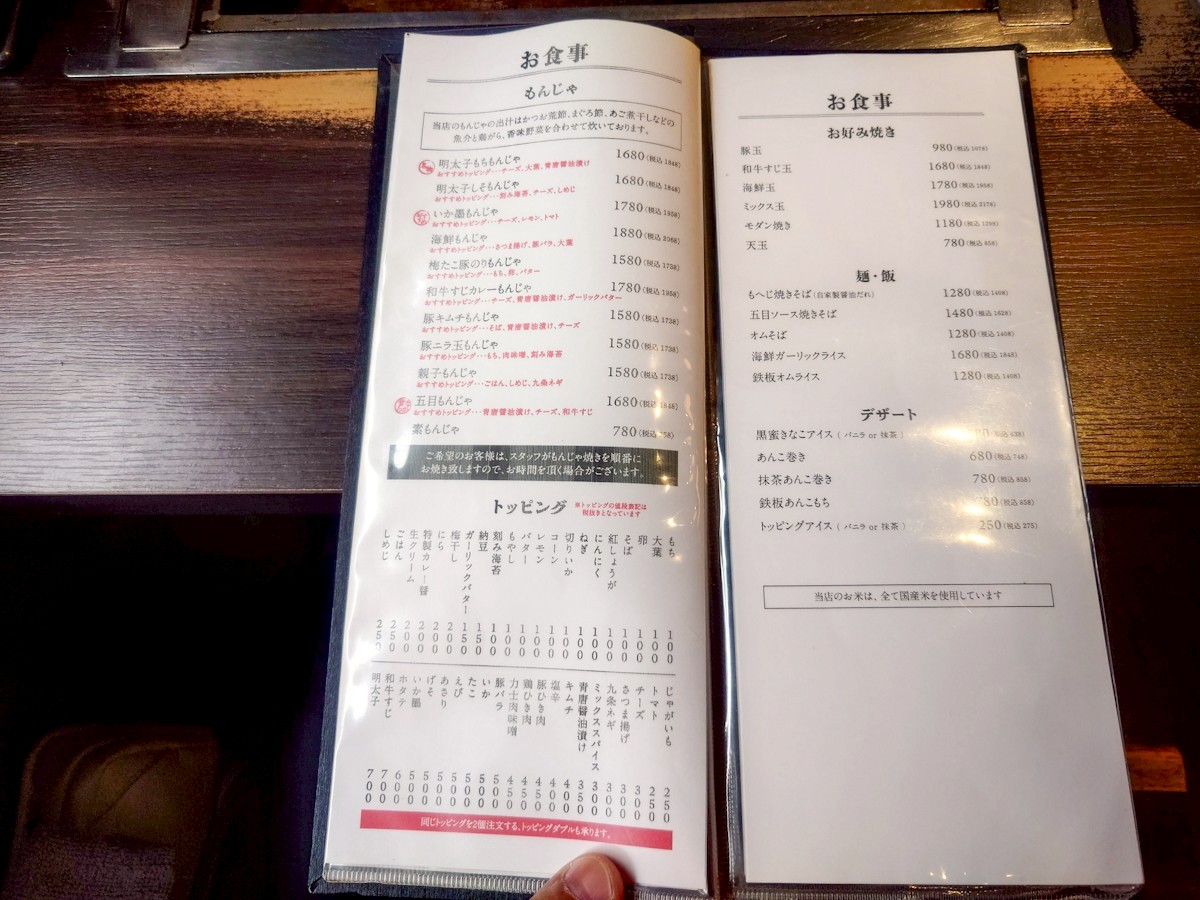 お食事
もんじゃ
当店のもんじゃの出汁はかつお荒節、まぐろ節、あご煮干しなどの
魚介と鶏がら、香味野菜を合わせて炊いております。
明太子もちもんじゃ 1680(税込 1848)
おすすめトッピング・・・チーズ、大葉、青唐醤油漬け
明太子しそもんじゃ 1680(税込 1848)
おすすめトッピング・・・刻み海苔、チーズ、しめじ
いか墨もんじゃ 1780(税込 1958)
おすすめトッピング・・・チーズ、レモン、トマト
海鮮もんじゃ 1880(税込 2068)
おすすめトッピング・・・さつま揚げ、豚バラ、大葉
梅たこ豚のりもんじゃ 1580(税込 1738)
おすすめトッピング・・・もち、卵、バター
和牛すじカレーもんじゃ 1780(税込 1958)
おすすめトッピング・・・チーズ、青唐醤油漬け、ガーリックバター
豚キムチもんじゃ 1580(税込 1738)
おすすめトッピング・・・そば、青唐醤油漬け、チーズ
豚ニラ玉もんじゃ 1580(税込 1738)
おすすめトッピング・・・もち、肉味噌、刻み海苔
親子もんじゃ 1580(税込 1738)
おすすめトッピング・・・ごはん、しめじ、九条ネギ
五目もんじゃ 1680(税込 1848)
おすすめトッピング・・・青唐醤油漬け、チーズ、和牛すじ
素もんじゃ 780(税込 858)
ご希望のお客様は、スタッフがもんじゃ焼きを順番に
お焼き致しますので、お時間を頂く場合がございます。
トッピング
※トッピングの値段表記は
税抜きとなっています
もち 100
大葉 100
卵 100
そば 100
紅しょうが 100
にんにく 100
ねぎ 100
切りいか 100
コーン 100
レモン 100
バター 100
もやし 100
刻み海苔 100
納豆 150
ガーリックバター 150
梅干し 200
にら 200
特製カレー醤 200
生クリーム 200
ごはん 250
しめじ 250
じゃがいも 250
トマト 250
チーズ 300
さつま揚げ 300
九条ネギ 300
ミックススパイス 300
青唐醤油漬け 350
キムチ 400
塩辛 400
豚ひき肉 450
鶏ひき肉 450
力士肉味噌 450
豚バラ 500
いか 500
たこ 500
えび 500
あさり 500
げそ 500
いか墨 500
ホタテ 600
和牛すじ 700
明太子 700
同じトッピングを2個注文する、トッピングダブルも承ります。
お食事
お好み焼き
豚玉 980(税込 1078)
和牛すじ玉 1680(税込 1848)
海鮮玉 1780(税込 1958)
ミックス玉 1980(税込 2178)
モダン焼き 1180(税込 1298)
天玉 780(税込 858)
麺・飯
もへじ焼きそば(自家製醤油だれ) 1280(税込 1408)
五目ソース焼きそば 1480(税込 1628)
オムそば 1280(税込 1408)
海鮮ガーリックライス 1680(税込 1848)
鉄板オムライス 1280(税込 1408)
デザート
黒蜜きなこアイス ( バニラ or 抹茶 )
あんこ巻き 680(税込 748)
抹茶あんこ巻き 780(税込 858)
鉄板あんこもち 780(税込 858)
トッピングアイス ( バニラ or 抹茶 ) 250(税込 275)
当店のお米は、全て国産米を使用しています